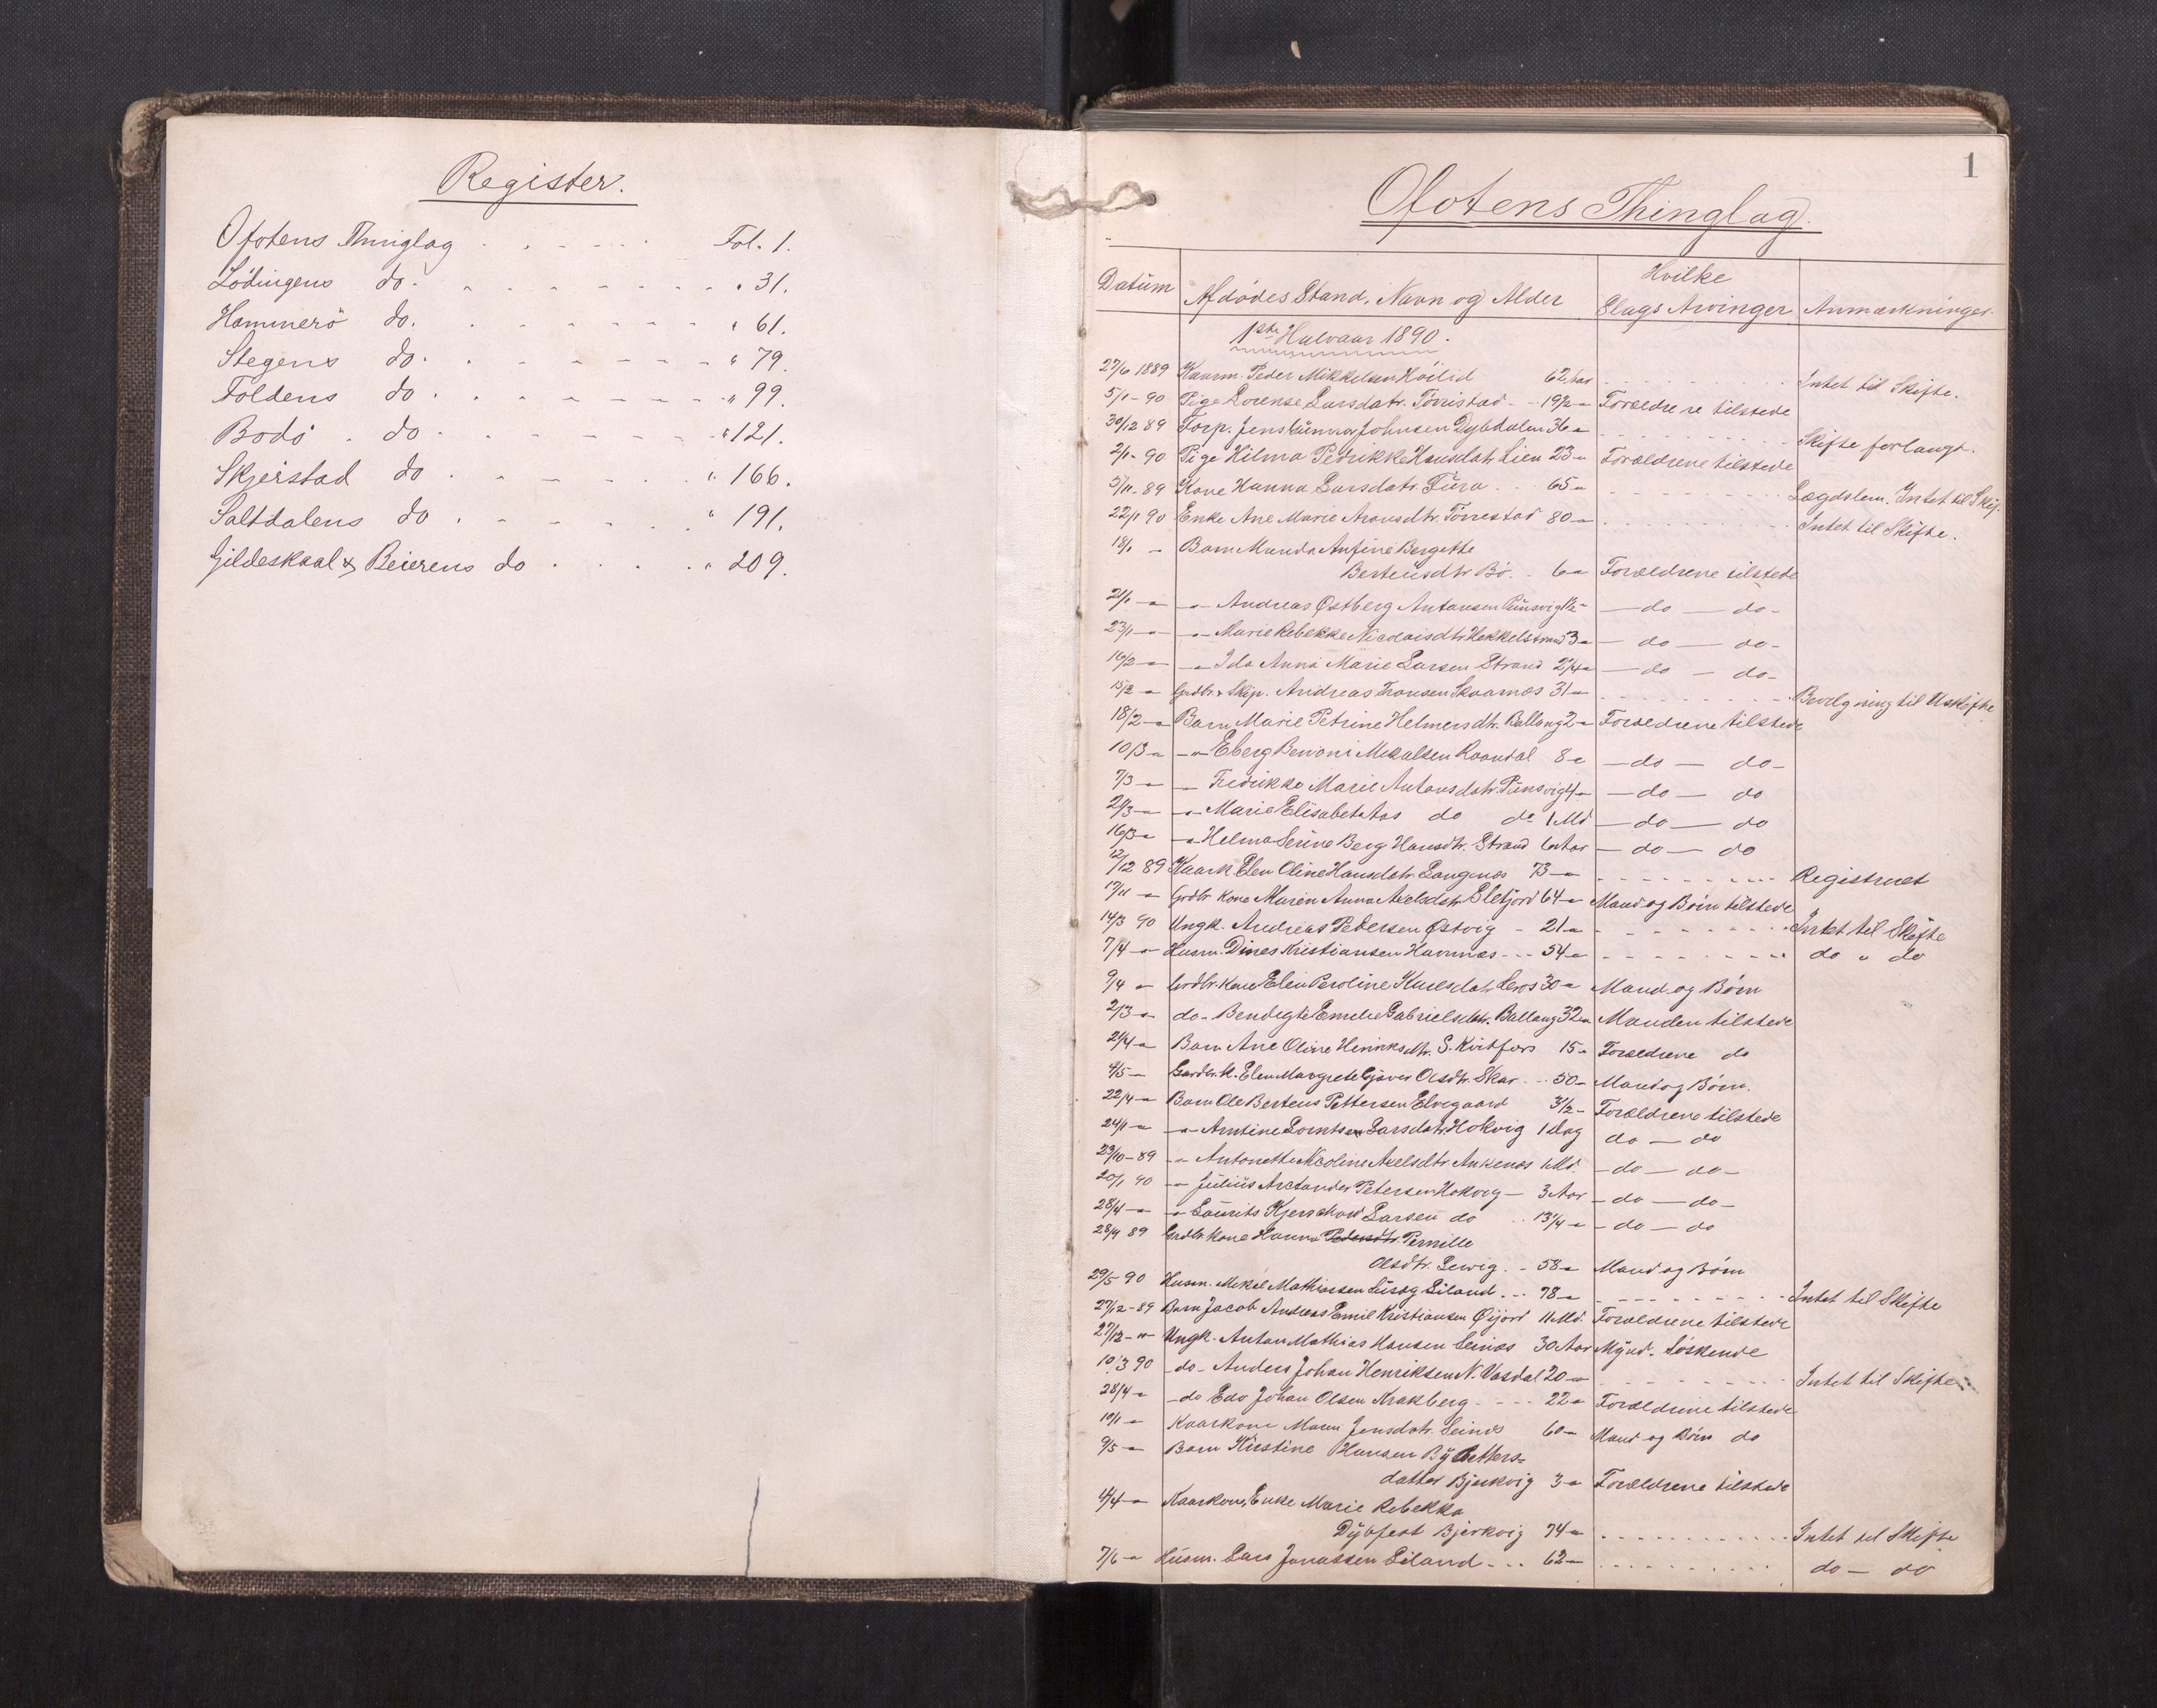 Register.
Ofotens Thinglag . . . . . . Fol. 1.
Lödingens do. . . . . . . . " 31.
Hammerö do. . . . . . . . " 61.
Stegens do. . . . . . . . " 79.
Foldens do. . . . . . . . " 99.
Bodö . do. . . . . . . . " 121.
Skjerstad do . . . . . . . " 166.
Saltdalens do . . . . . . . " 191.
Gildeskaal & Beierens do . . . . . " 209.
1
Ofotens Thinglag.
Datum Afdödes Stand, Navn og Alder Hvilke Slags Arvinger Anmærkninger.
1ste Halvaar 1890.
27/6 1889 Kaarm. Peder Mikkelsen Höilid 62 Aar Intet til Skifte.
5/1 - 90 Pige Lorense Larsdatr. Törristad 19½ " Forældrene tilstede
30/12 89 Torp. Jens Johnsen Dybdalen 36 " Skifte forlangt.
2/1 - 90 Pige Hilma Pedrikke Hansdatr Lien 23 " Forældrene tilstede
5/11 - 89 Kone Hanna Larsdatr. 65 " Lægdslem. Intet til Skif.
22/1 90 Enke Ane Marie Aronsdtr. Törrestad 80 " Intet til Skifte.
18/1 - Barn Manda Anfine Bergette
Berteusdtr Bö. 6 " Forældrene tilstede
21/1 " " Andreas Østberg Antonsen - do - do -
23/1 " " Marie Rebekke Nicolaisdtr. 3 " - do - do -
16/2 " " Ida Anna Marie Larsen Strand 2¼ " - do - do -
15/2 " Grdbr. & Skip. Andreas Skaarnæs 31 " Bevilgning til Uskifte
18/2 " Barn Marie Petrine Helmersdtr. Ballang 2 " Forældrene tilstede
10/3 " " Eberg Benoni Mekalsen 8 " - do - do -
7/3 " " Fredrikke Marie Antonsdatr. 4 " - do - do
" " Marie Elisabet do do 1 Md - do - do
16/3 " " Helma Serine Berg Hansdtr. Strand 6 Aar - do - do
12/12 89 Kaark Elen Oline Hansdatr. Langnes 73 " Registreret
17/11 " Grdbr Kone Maren Anna Axelsdatr 64 " Mand og Börn tilstede
14/3 90 Ungk. Andreas Pedersen Østvig - 21 " Intet til Skifte
7/4 " Husm. Dines Kristiansen Havnnæs - - - 54 " do " do
9/4 " Grdbr. Kone Elen Peroline 30 " Mand og Börn
2/3 " do - Bendigte Emelie Gabrielsdtr. Ballang 32 " Manden tilstede
21/4 " Barn Ane Oline Henriksdtr. S. Kvitfors 15 " Forældrene do
4/5 - Gaardbr. K. Elen Margrete Olsdtr. Skar 50 - Mand og Börn.
22/4 " Barn Ole Berteus Pettersen Elvegaard 3½ - Forældrene tilstede
24/1 " " Larsdatr. Hokvig 1 Dag do - do
23/10 - 89 " Antonette Nicoline Axelsdtr Ankenæs 1 Md. - do - do -
20/1 90 " Julius Petersen Hokvig - 3 Aar - do - do -
28/4 " " Laurits Larsen do 13¼ " - do - do
28/9 89 Grdbr Kone Hanna Pedersdtr. Pernille
Olsdtr. 58 " Mand og Börn
29/5 90 Husm. Mekal Mathiassen Liland 78 " Intet til Skifte
27/12 - 89 Barn Jacob Andreas Emil Kristiansen Øijord 11 Md. Forældrene tilstede
27/12 - " Ungk. Anton Mathias Hansen Seines 30 Aar Mynd. Söskende
10/3 90 do - Anders Johan Henriksen N. Vasdal 20 " Intet til Skifte
28/4 " do Edv Johan Olsen Krakberg 22 " Forældrene tilstede
10/1 " Kaarkone Maren Jensdatr. Seines 60 " Mand og Börn do
9/5 " Barn Kirstine Hansen
datter Bjerkvig 3 " Forældrene tilstede
4/4 " Kaarkone, Enke Marie Rebekka
Dybfest Bjerkvig 74 " Intet til Skifte
7/6 " Husm. Lars Jonassen Liland - - - 62 - do - do